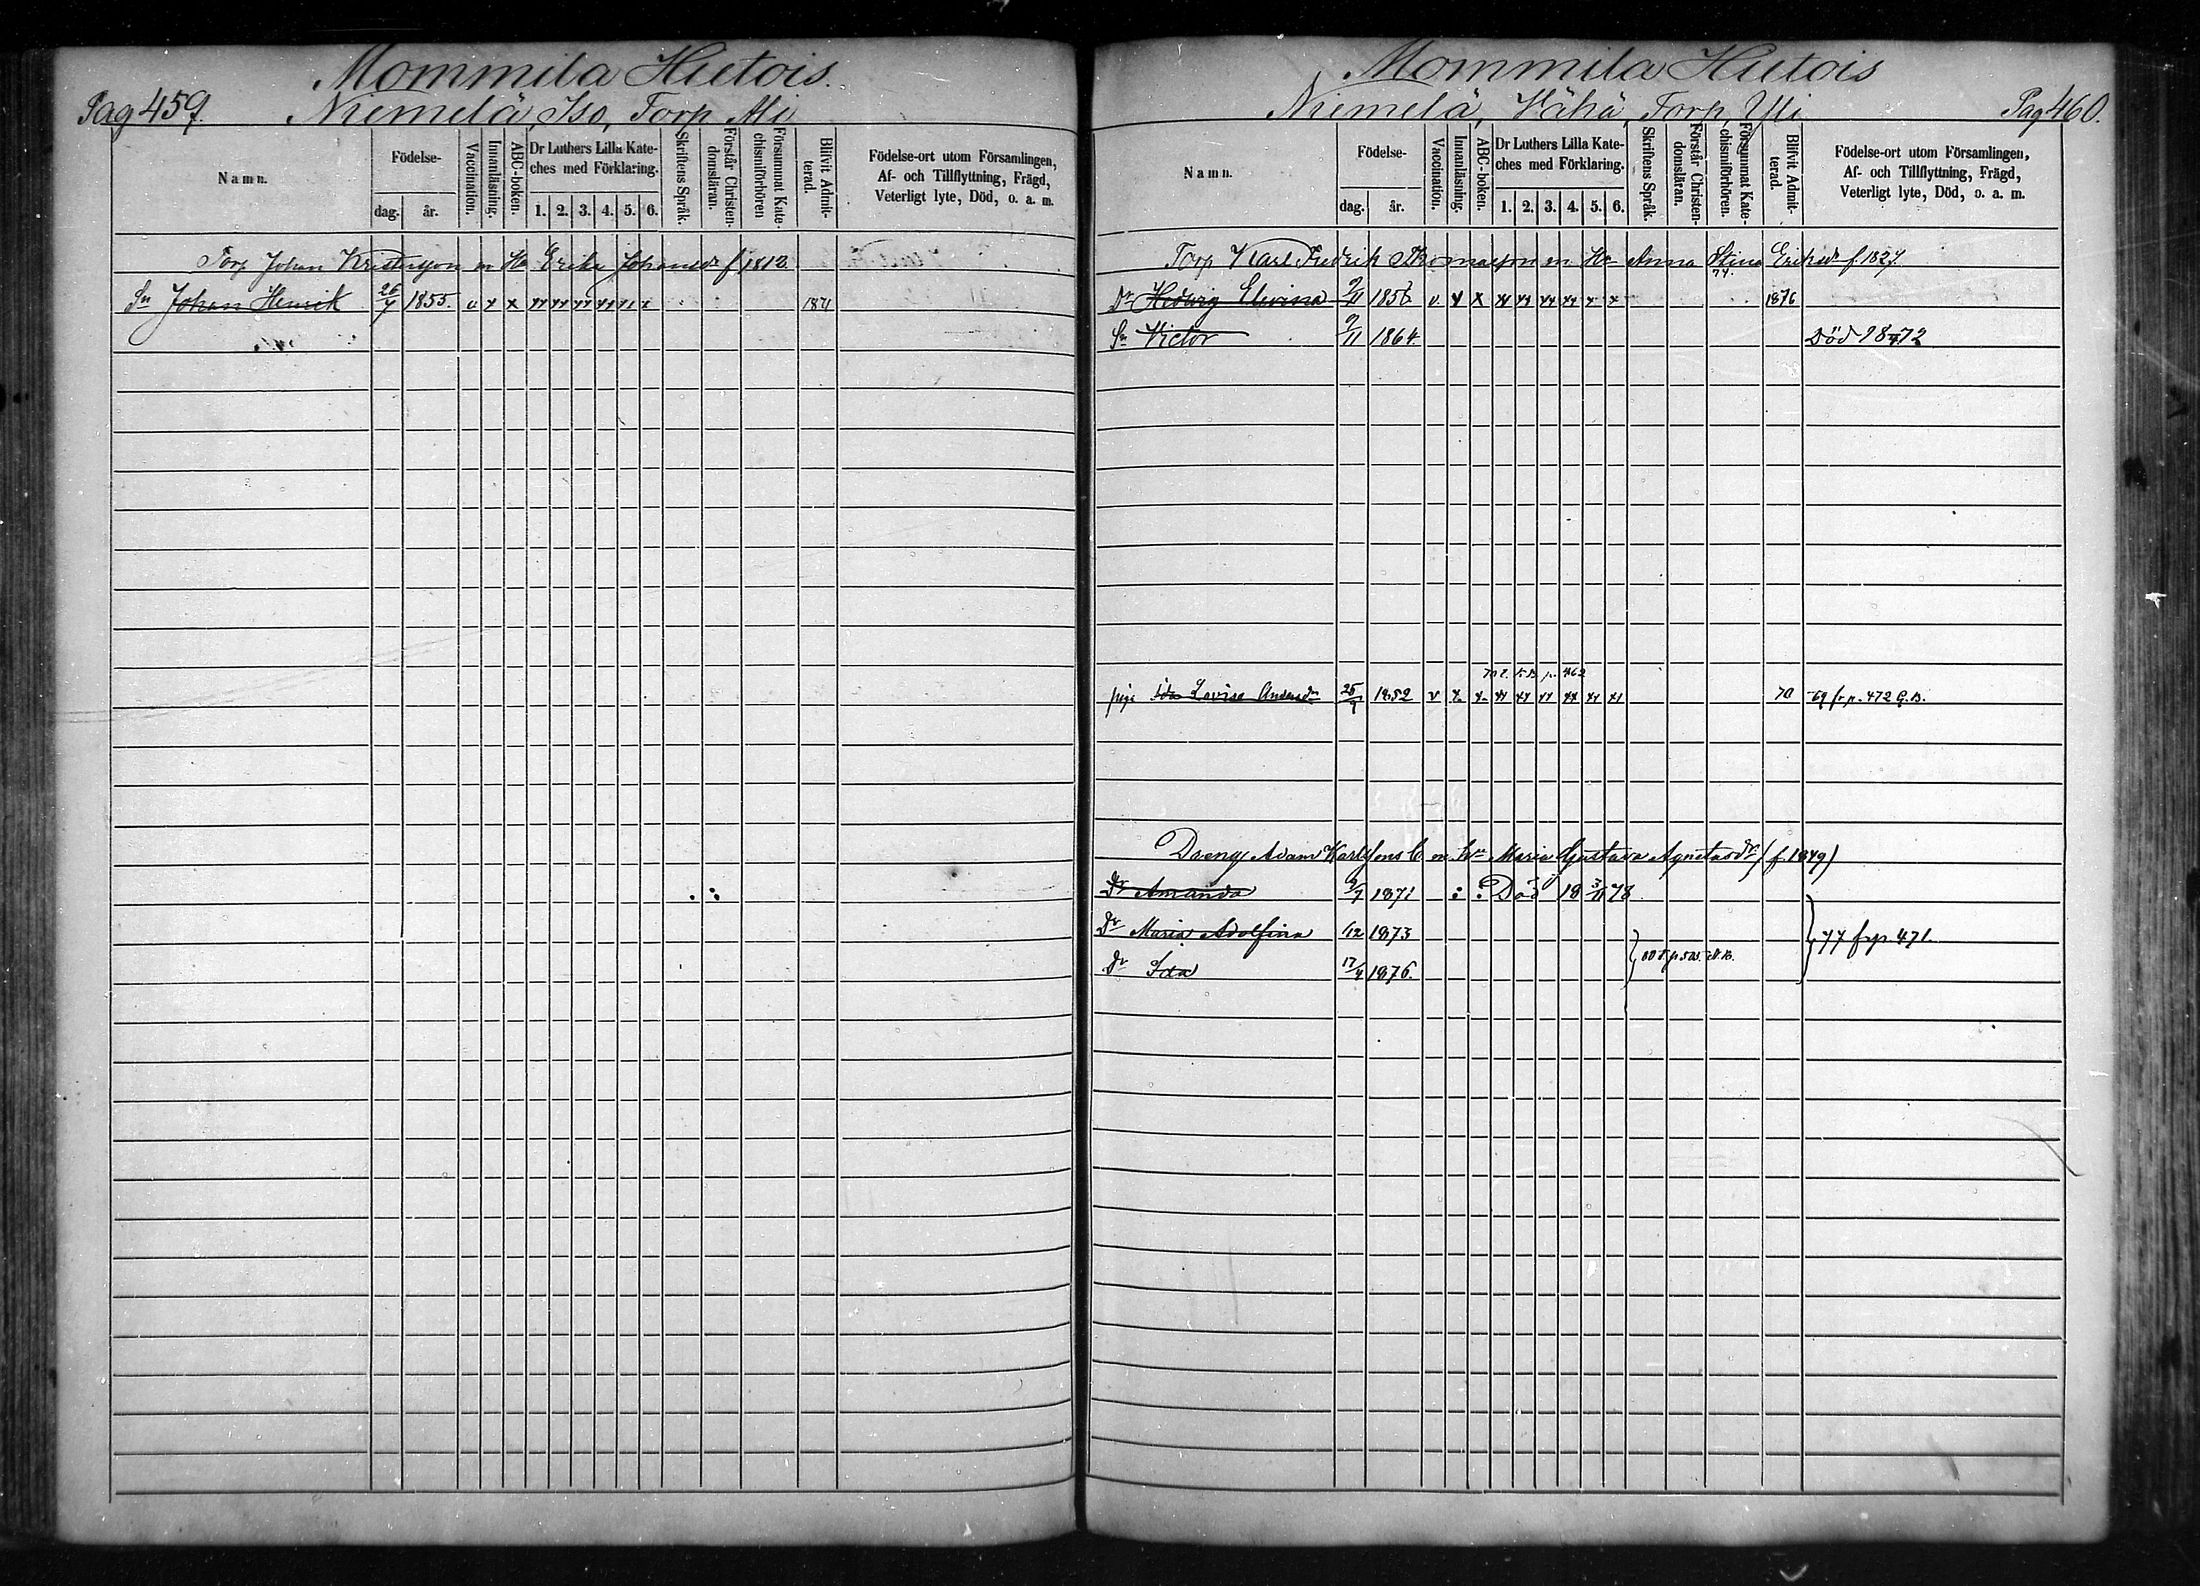 Mommila Hietois.
Pag 459. Niemelä, Iso, Torp Yli
Namn.
Födelse-
dag. år.
Vaccination.
Innanläsning.
ABC-boken.
Dr Luthers Lilla Kate-
ches med Förklaring.
1. 2. 3. 4. 5. 6.
Skriftens Språk.
Förstår Christen-
domsläran.
Försummat Kate-
chismiförhören
Blifvit Admit-
terad.
Födelse-ort utom Församlingen,
Af- och Tillflyttning, Frägd,
Veterligt lyte, Död, o. a. m.
Torp Johan Kristersson m Ho Erika Johansdr f 1812.
Sn Johan Henrik 26/7 1855. v x x xx xx xx xx 1871
Mommila Hietois
Niemelä, Vähä, Torp, Yli Pag 460.
Namn.
Födelse-
dag. år.
Vaccination.
Innanläsning.
ABC-boken.
Dr Luthers Lilla Kate-
ches med Förklaring.
1. 2. 3. 4. 5. 6.
Skriftens Språk.
Förstår Christen-
domsläran.
Försummat Kate-
chismiförhören.
Blifvit Admit-
terad.
Födelse-ort utom Församlingen,
Af- och Tillflyttning, Frägd,
Veterligt lyte, Död, o. a. m.
Torp Karl Fredrik Thomasson m Ho Anna Stina Eriksdr f. 1827.
74.
Dr Hedwig Elevina 9/11 v x x xx xx xx xx x x 1876
Sn Victor 9/11 1864. Död 18 72
p. 462
piga Lovisa Andersdr 25/9 1852 v x x xx xx xx xx xx xx 70 -69 fr p. 472 G.B.
Dreng Adam Karlssons m hu Maria Gustava Agnetasdr (f. 1849)
Dr Amanda 9/7 1871 Död 18 3/11 78.
Dr Maria Adolfina /12 1873
77 fr p. 471.
Dr Ida 17/4 1876.